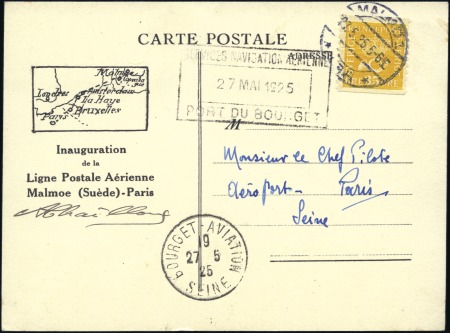 CARTE POSTALE
ADRESSE
SERVICES NAVIGATION AERIENNE
27 MAI 1925
PORT DU BOURGET
MALMÖ
Malmoe
Londres
Amsterdam
La Haye
Bruxelles
Paris
M
Inauguration
de la
Ligne Postale Aérienne
Malmoe (Suède)-Paris
Monsieur le Chef Pilote
Aéroport - Paris
Seine
BOURGET-AVIATION
19
27 5
25
SEINE